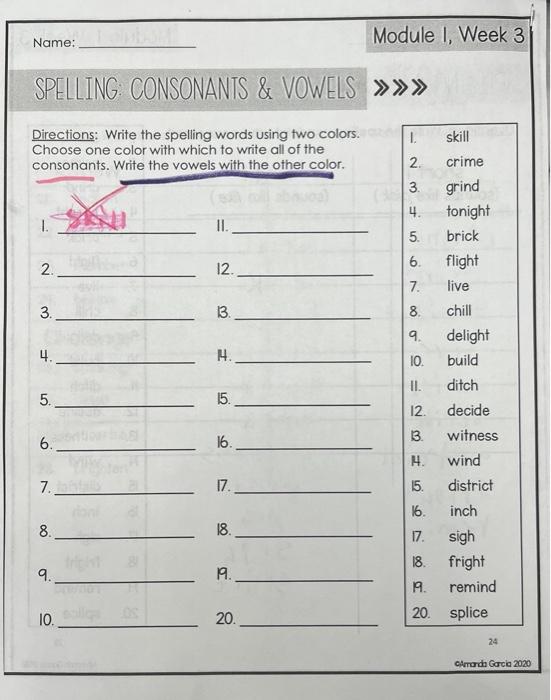 Name:
Module 1, Week 3
SPELLING: CONSONANTS & VOWELS >>>
Directions: Write the spelling words using two colors.
Choose one color with which to write all of the
consonants. Write the vowels with the other color.
1.
2.
3.
4.
5.
6.
7.
8.
9.
10.
11.
12.
13.
14.
15.
16.
17.
18.
19.
20.
1. skill
2. crime
3. grind
4. tonight
5. brick
6. flight
7. live
8. chill
9. delight
10. build
11. ditch
12. decide
13. witness
14. wind
15. district
16. inch
17. sigh
18. fright
19. remind
20. splice
24
©Amanda Garcia 2020